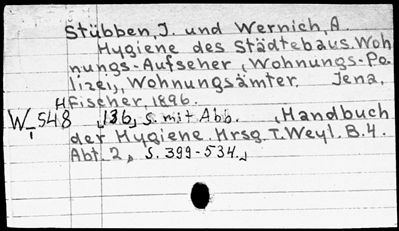 Stübben, J. und Wernich, A.
Hygiene des Städtebaus. Woh
nungs-Aufseher, Wohnungs-Po
lizei, Wohnungsämter. Jena,
H Fischer, 1896.
W-548 136, S. mit Abb. (Handbuch
I
der Hygiene. Hrsg. T. Weyl. B. 4.
Abt. 2, S. 399-534.)